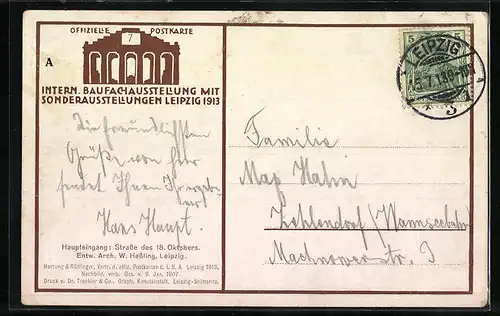 OFFIZIELLE POSTKARTE
7
A
INTERN. BAUFACHAUSSTELLUNG MIT
SONDERAUSSTELLUNGEN LEIPZIG 1913
Die freundlichsten
Grüße von hier
sendet Ihnen Ihr ergeb
Hans Haupt.
Haupteingang: Straße des 18. Oktobers.
Entw. Arch. W. Heßling, Leipzig.
Hartung & Büttinger, Vertr. d. offiz. Postkarten d. I. B. A. Leipzig 1913.
Nachbild. verb. Ges. v. 9. Jan. 1907.
Druck v. Dr. Trenkler & Co., Graph. Kunstanstalt, Leipzig-Stötteritz.
5 5
LEIPZIG
3
Familie
Max Hahn
Zehlendorf (Wannseebahn)
Machnowerstr. 3